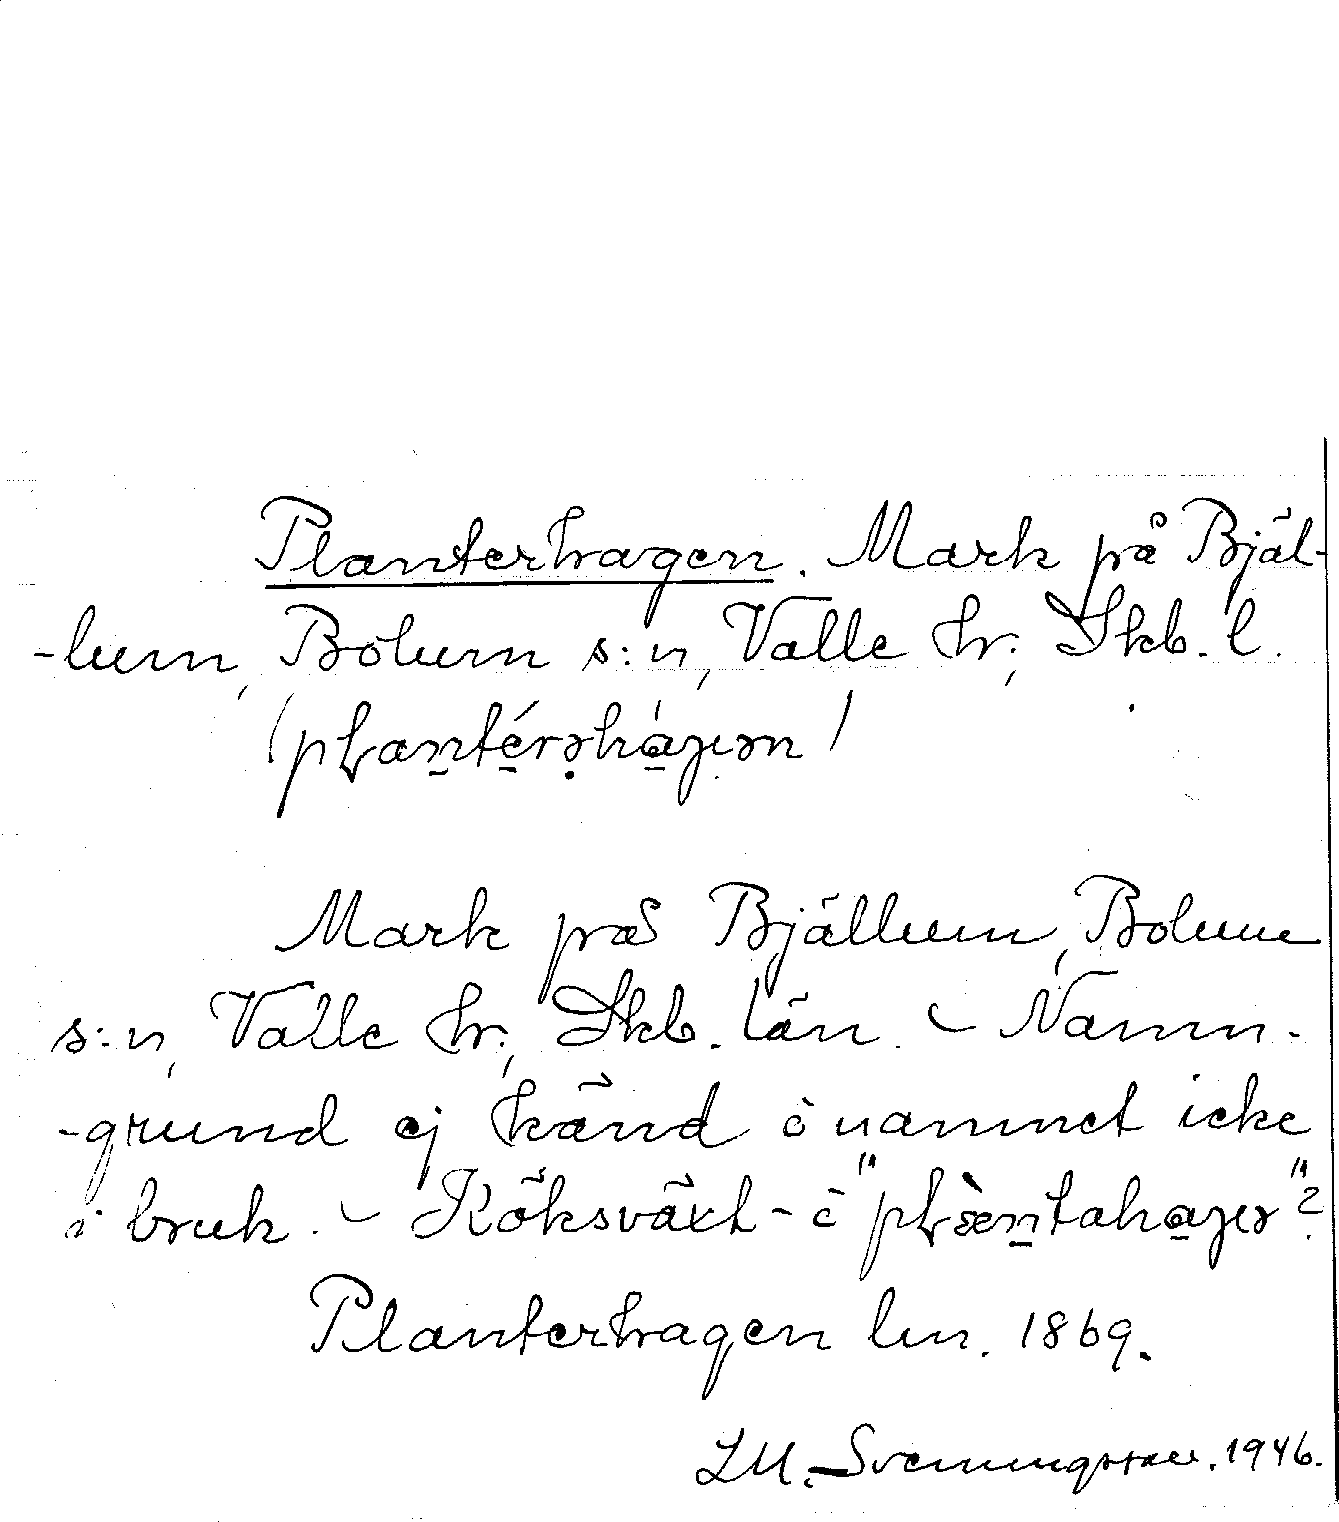 Planterhagen. Mark på Bjäl-
-lum, Bolum s:n, Valle hr; Skb. l.
Mark på Bjällum, Bolum
s:n, Valle hr; Skb. län. - Namn-
-grund ej känd o namnet icke
i bruk. - Köksväxt -
Planterhagen lm. 1869.
Sveningsson. 1946.